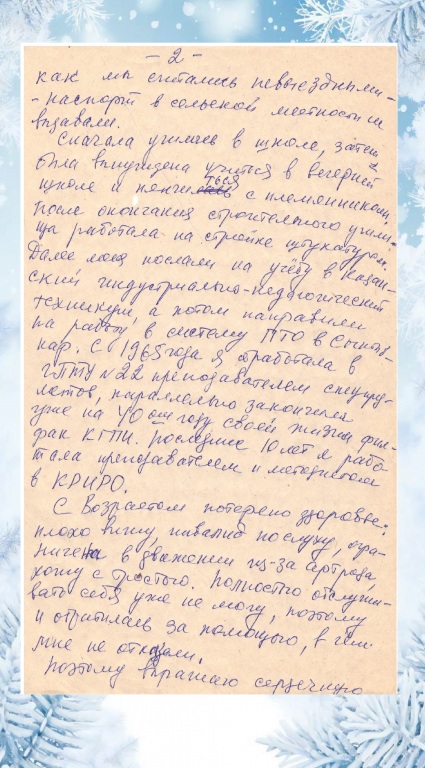 - 2 -
как мы считались невыездными -
- паспорт в сельской местности не
выдавали.
Сначала училась в школе, затем
была вынуждена учиться в вечерней
школе и нянчиться с племянниками.
После окончания строительного учили-
ща работала на стройке штукатуром.
Далее меня послали на учёбу в Казан-
ский индустриально-педагогический
техникум, а потом направили
на работу в систему ПТО в Сыктыв-
кар. С 1965 года я работала в
ГПТУ № 22 преподавателем спецпред-
метов, параллельно закончила
уже на 40 ом году своей жизни физ-
фак КГПИ. Последние 10 лет я рабо-
тала преподавателем и методистом
в КРИРО.
С возрастом потеряно здоровье:
плохо вижу, инвалид по слуху, огра-
ничена в движении из-за артроза,
хожу с тростью. Полностью обслужи-
вать себя уже не могу, поэтому
и обратилась за помощью, в чём
мне не отказали.
Поэтому выражаю сердечную